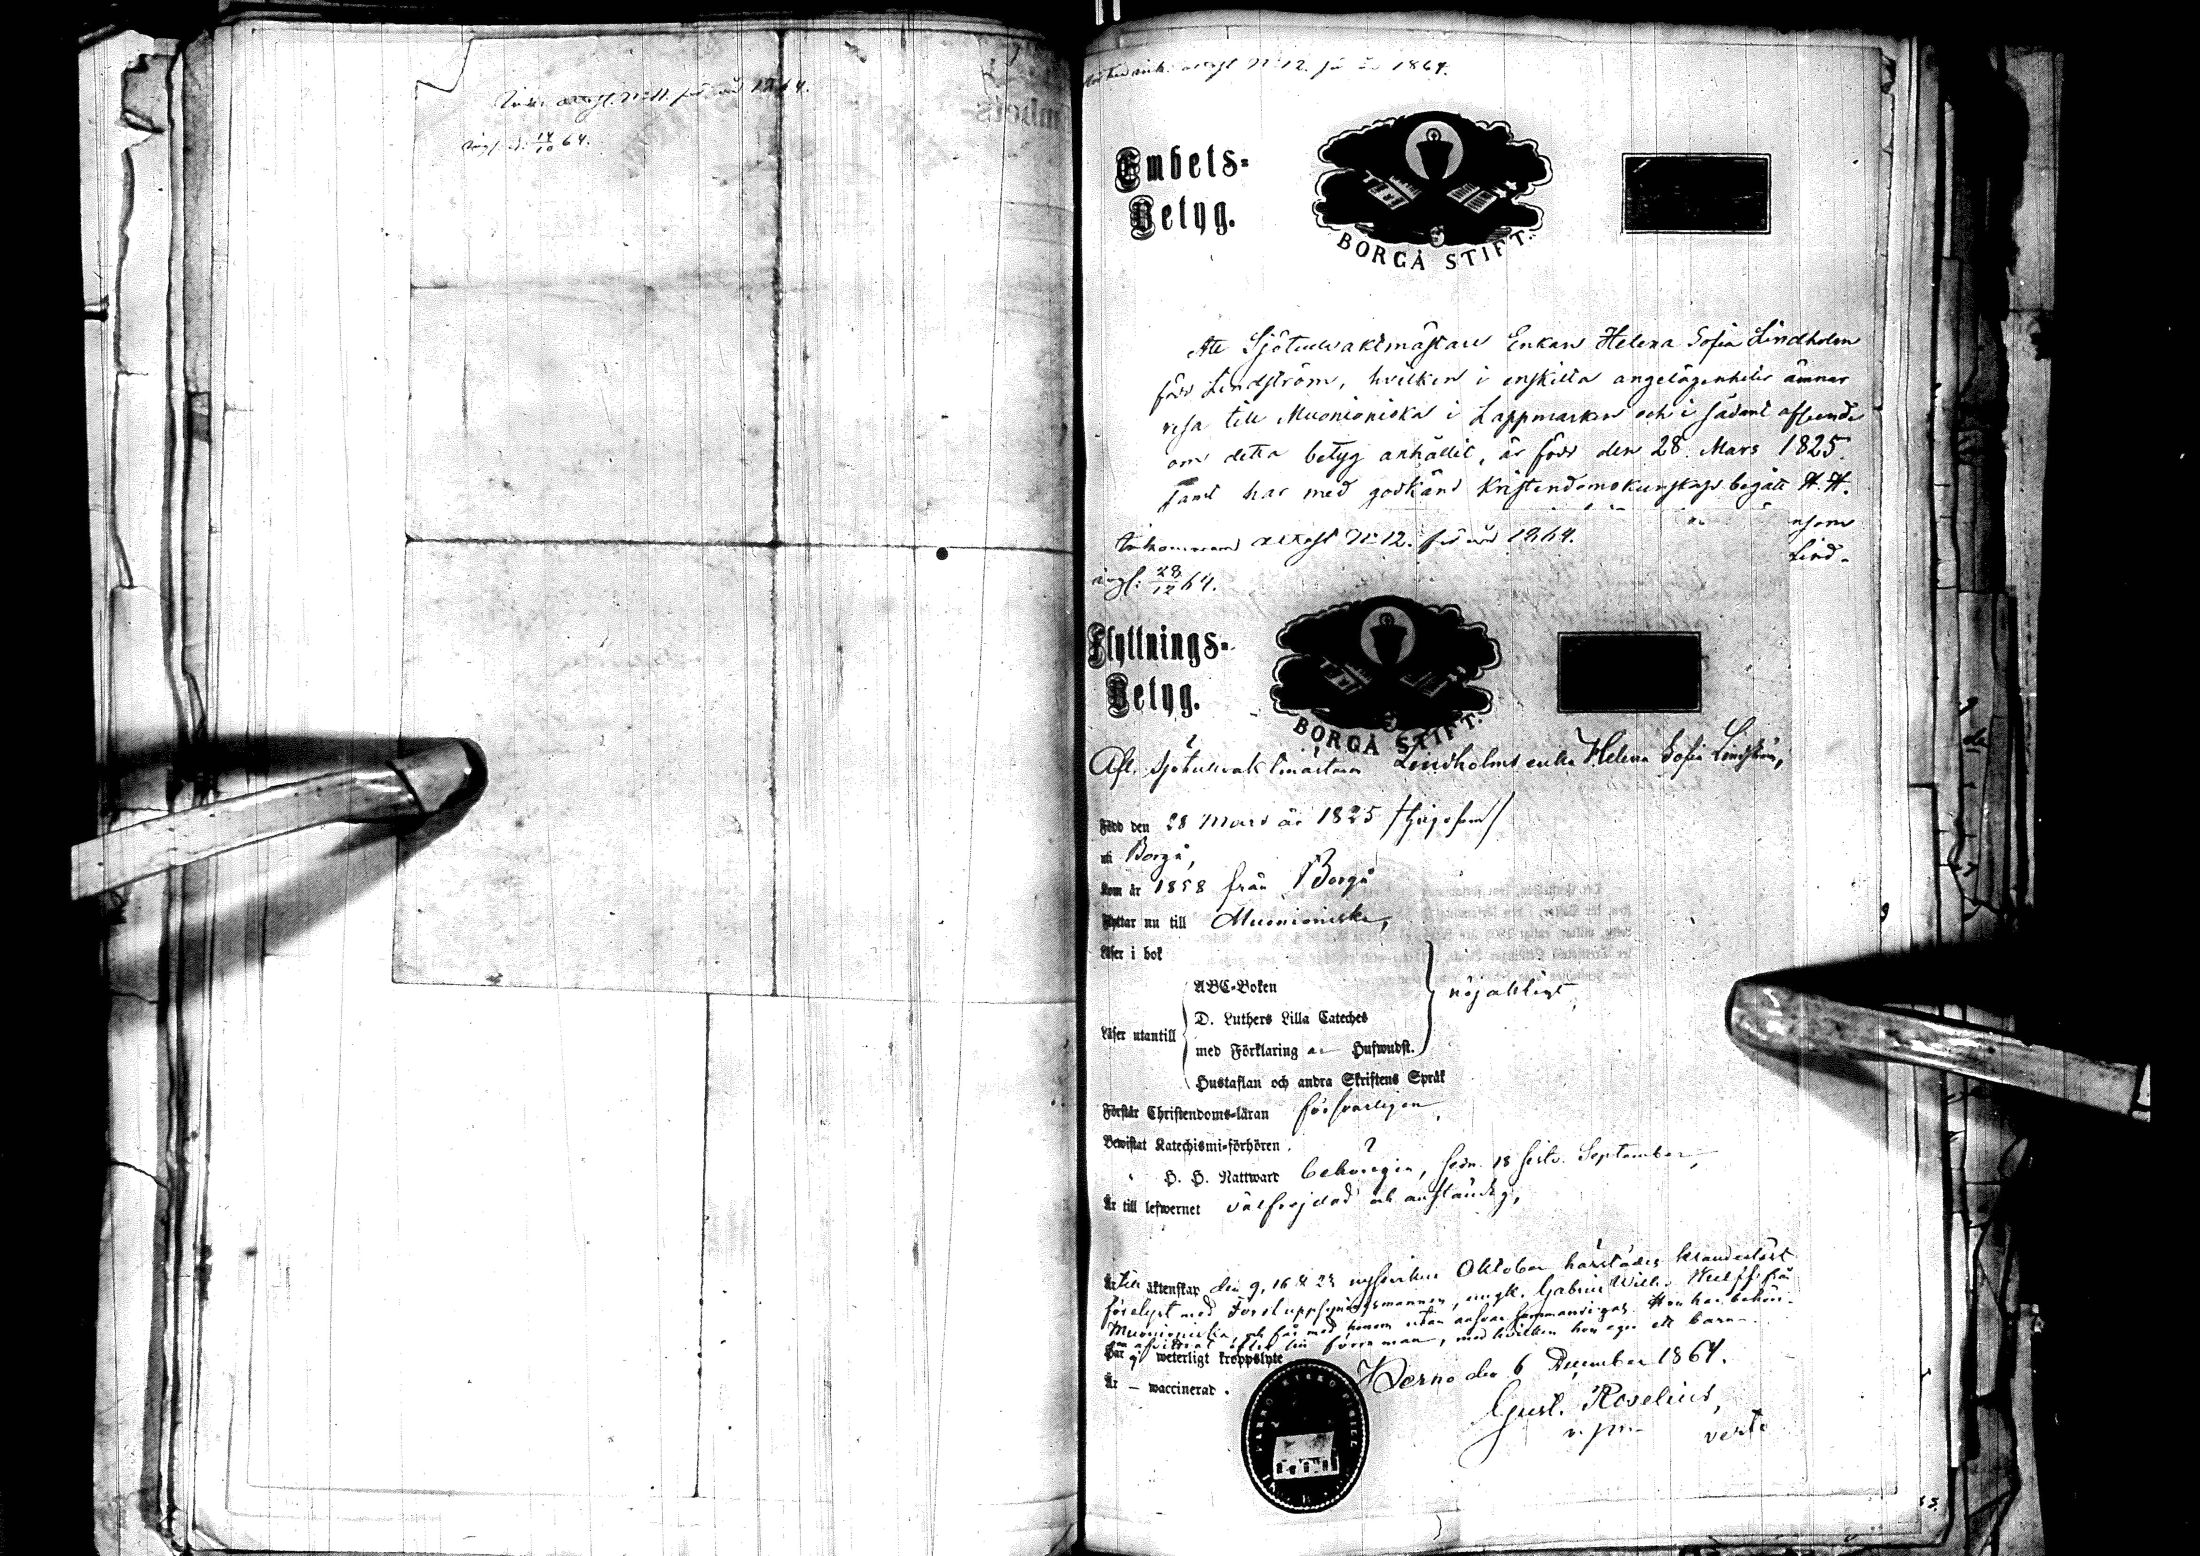 attest. N:o 11. för år 1864.
ingl. d. 14/10 64.
attest N:o 12. för år 1864.
Embets-
Betyg.
BORGÅ STIFT.
Att Sjötullvaktmästare Enkan Helena Sofia Lindholm
född Lindström, hvilken i enskilta angelägenheter ämnar
resa till Muonioniska i Lappmarken och i sådant afseende
om detta betyg anhållit, är född den 28 Mars 1825.
samt har med godkänd Kristendomskunskap begått H. H.
Lind-
Inkommande attest N:o 12. för år 1864.
ingl: 28/12 64.
Flyttnings-
Betyg.
BORGÅ STIFT.
Afl. Sjötullvaktmästaren Lindholms enka Helena Sofia Lindström,
Född den 28 Mars år 1825
uti Borgå,
kom år 1858 från Borgå
Flyttar nu till Muonioniska,
Läser i bok
ABC-Boken
nöjaktligt
D. Luthers Lilla Cateches
Läser utantill
med Förklaring Hufwudst.
Hustaflan och andra Skriftens Språk
Förstår Christendoms-läran försvarligen,
Bewistat Katechismi-förhören
H. H. Nattward behörigen, sedn. 18 sistl. September,
Är till lefwernet välfrejdad och anständig,
Är till äktenskap den 9, 16 & 23 nystvikne Oktober härstädes
förelyst med Forstuppsyningsmannen, ungk. Gabriel Wilh. från
Muonioniska, och får med honom utan ansvar Hon har behöri-
afvittrat efter sin förre man, med hvilken hon eger ett barn.
Har ej weterligt kroppslyte
Är — waccinerad.
Perno den 6 December 1864.
Gust. Roselius,
v. p.
verte